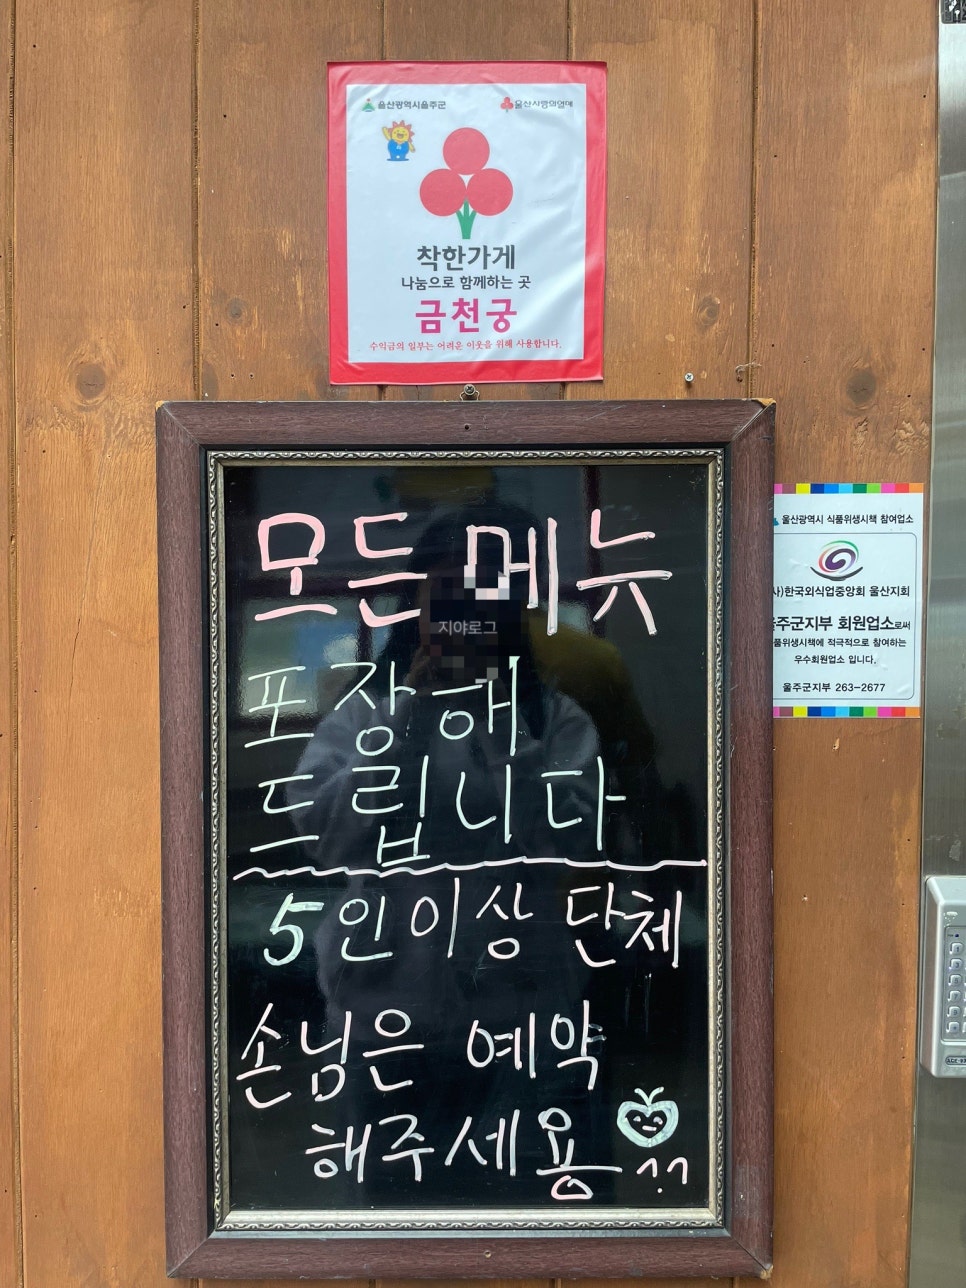 울산광역시울주군 울산사랑의열매
착한가게
나눔으로 함께하는 곳
금천궁
수익금의 일부는 어려운 이웃을 위해 사용합니다.
모든 메뉴
포장해
드립니다
5인이상 단체
손님은 예약
해주세용 ^.^
지야로그
울산광역시 식품위생시책 참여업소
사)한국외식업중앙회 울산지회
울주군지부 회원업소로써
식품위생시책에 적극적으로 참여하는
우수회원업소 입니다.
울주군지부 263-2677